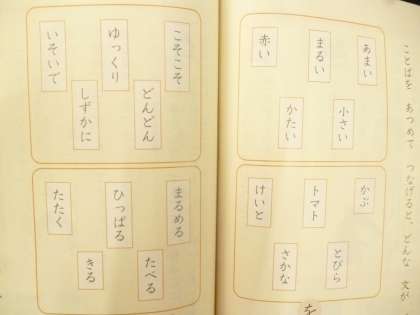 ことばを あつめて つなげると、どんな 文が
あまい
まるい
赤い
小さい
かたい
かぶ
トマト
けいと
とびら
さかな
を
こそこそ
ゆっくり
いそいで
どんどん
しずかに
まるめる
ひっぱる
たたく
たべる
きる